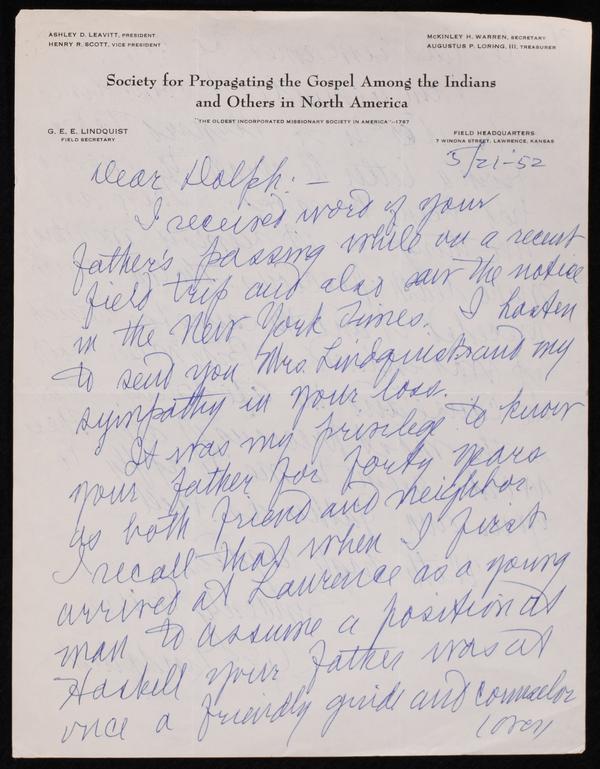 ASHLEY D. LEAVITT, PRESIDENT
HENRY R. SCOTT, VICE PRESIDENT
McKINLEY H. WARREN, SECRETARY
AUGUSTUS P. LORING, III, TREASURER
Society for Propagating the Gospel Among the Indians
and Others in North America
"THE OLDEST INCORPORATED MISSIONARY SOCIETY IN AMERICA"—1787
G. E. E. LINDQUIST
FIELD SECRETARY
FIELD HEADQUARTERS
7 WINONA STREET, LAWRENCE, KANSAS
5/21-'52
Dear Dolph: —
I received word of your
father's passing while on a recent
field trip and also saw the notice
in the New York Times. I hasten
to send you Mrs. Lindquist's and my
sympathy in your loss.
It was my privilege to know
your father for forty years
as both friend and neighbor
I recall that when I first
arrived at Lawrence as a young
man to assume a position at
Haskell your father was at
once a friendly guide and counselor
(over)